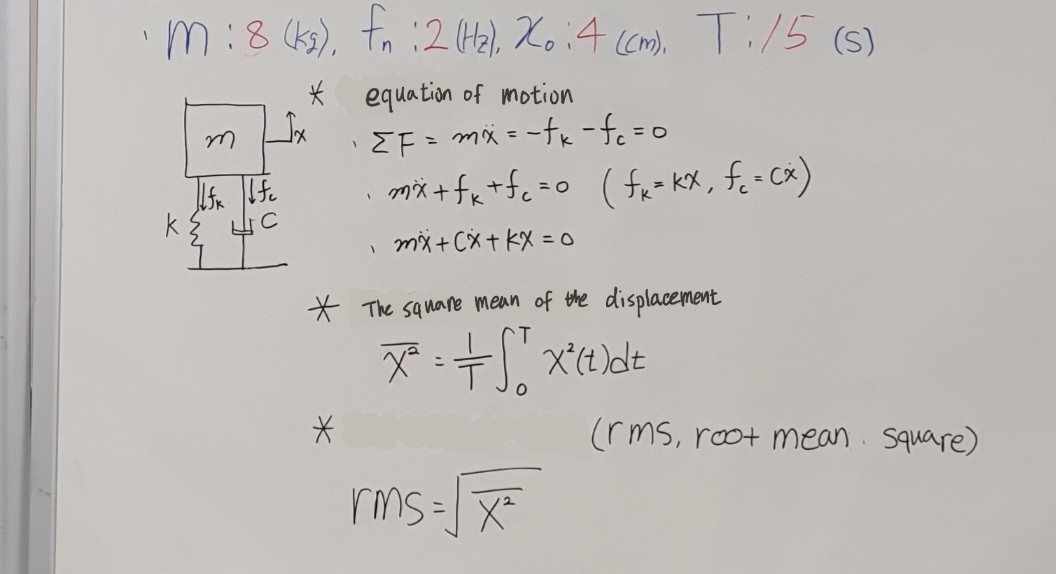 · m : 8 (kg), fn : 2 (Hz), X₀ : 4 (cm), T : 15 (s)
* equation of motion
m x
· ΣF = mẍ = -fk - fc = 0
fk fc
· mẍ + fk + fc = 0 ( fk = kx, fc = cẋ )
k C
· mẍ + Cẋ + kx = 0
* The square mean of the displacement
X̅²̅ = 1/T ∫₀ᵀ X²(t)dt
* (rms, root mean square)
rms = √X̅²̅